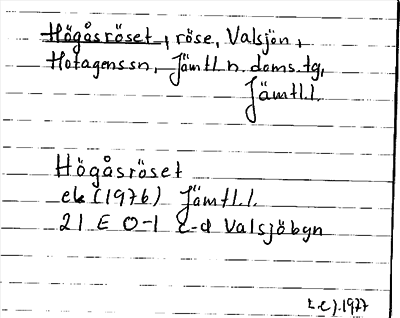 Högåsröset, röse, Valsjön,
Hotagens sn, Jämtl. n. doms. tg,
Jämtl. l.
Högåsröset
ek (1976) Jämtl. l.
21 E 0-1 c-d Valsjöbyn
1977